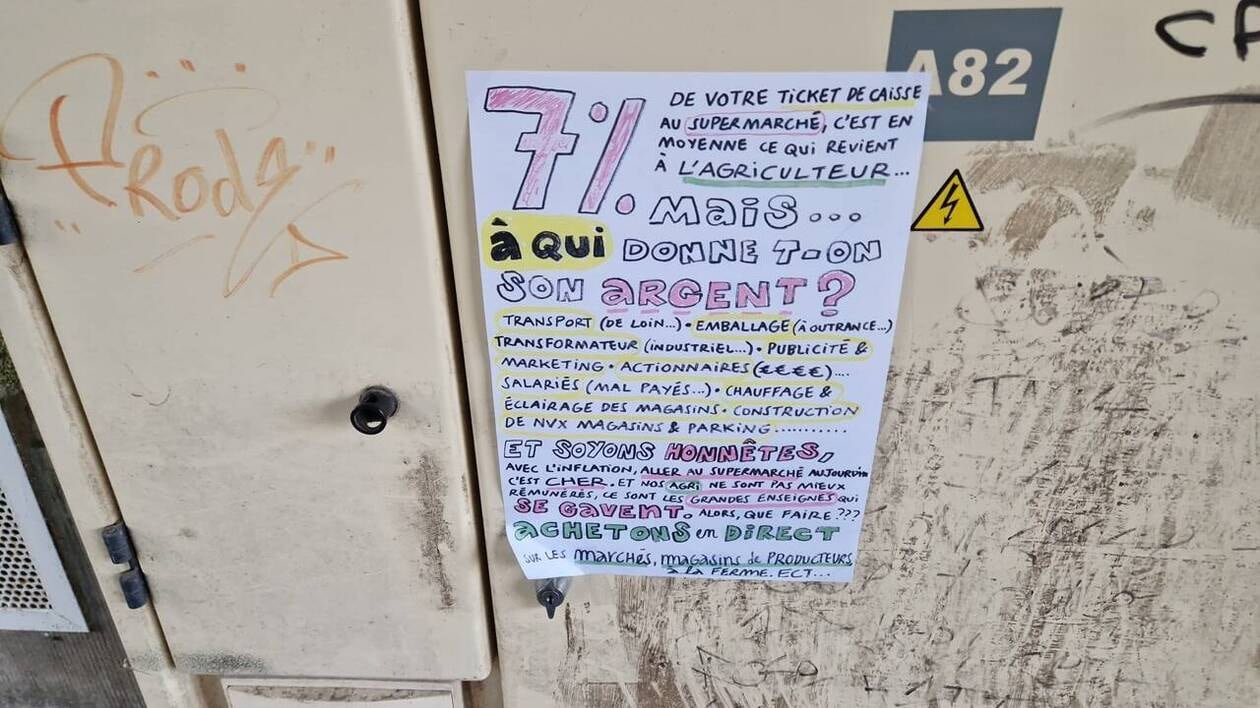 Prody
7% DE VOTRE TICKET DE CAISSE
AU SUPERMARCHÉ, C'EST EN
MOYENNE CE QUI REVIENT
À L'AGRICULTEUR...
MAIS...
À QUI DONNE T-ON
SON ARGENT?
TRANSPORT (DE LOIN...) • EMBALLAGE (À OUTRANCE...)
TRANSFORMATEUR (INDUSTRIEL...) • PUBLICITÉ &
MARKETING • ACTIONNAIRES (€€€€)....
SALARIÉS (MAL PAYÉS...) • CHAUFFAGE &
ÉCLAIRAGE DES MAGASINS • CONSTRUCTION
DE NVX MAGASINS & PARKING..........
ET SOYONS HONNÊTES,
AVEC L'INFLATION, ALLER AU SUPERMARCHÉ AUJOURD'HUI
C'EST CHER. ET NOS AGRI NE SONT PAS MIEUX
RÉMUNÉRÉS, CE SONT LES GRANDES ENSEIGNES QUI
SE GAVENT. ALORS, QUE FAIRE ???
ACHETONS en DIRECT
SUR LES MARCHÉS, MAGASINS de PRODUCTEURS,
à la FERME. ECT...
A82